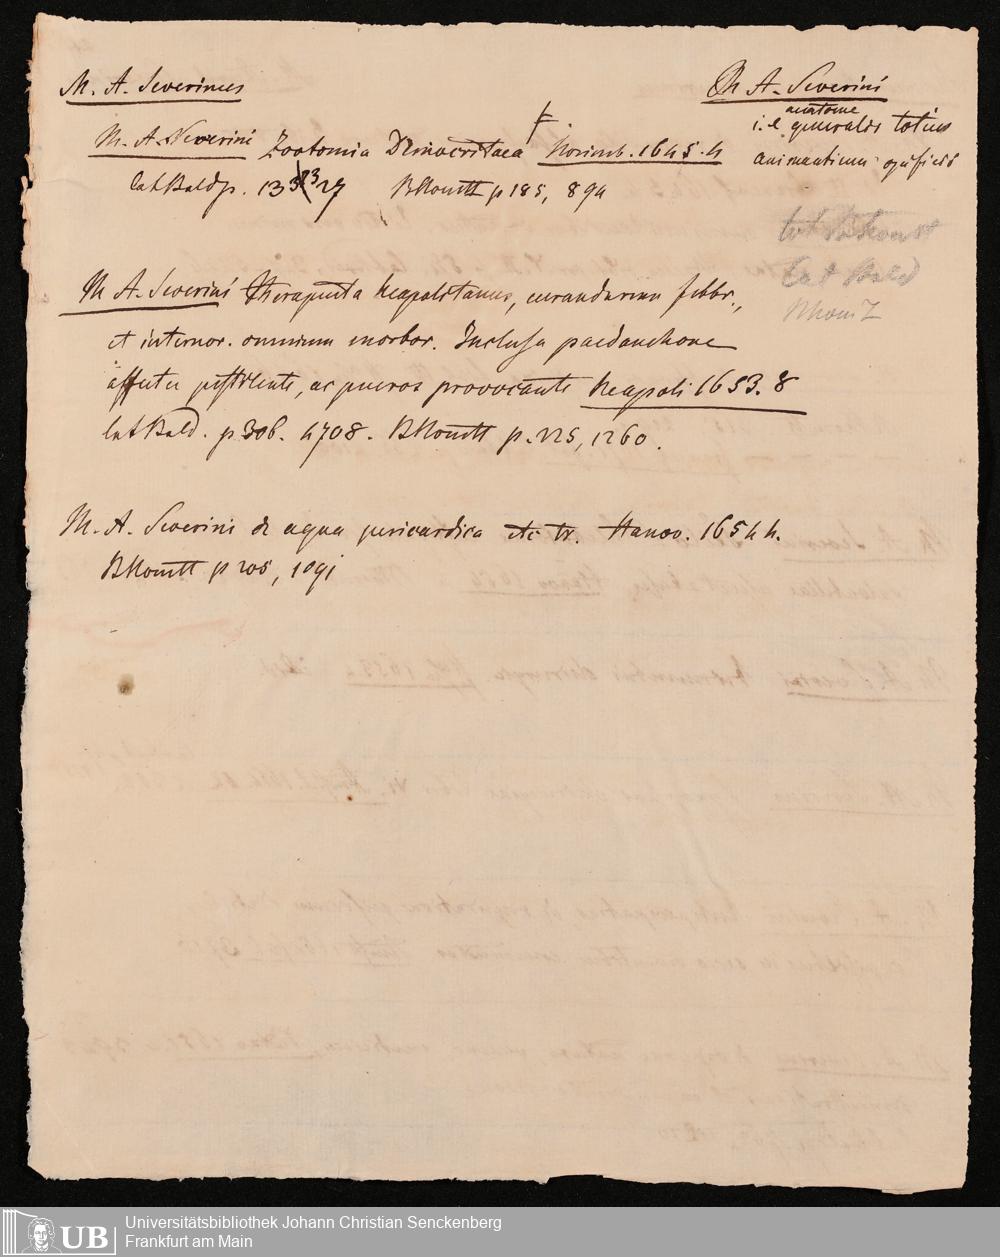 M. A. Severinus
M. A. Severini
M. A. Severini Zootomia Democritaea Norimb. 1645. 4
i. e. anatome generalis totius
animantium opificii
Cat Bald p. 133 27 BKomtt p 185, 894
Cat Bald
M A. Severini Therapeuta Neapolitanus, curandarum febbr.,
et internor. omnium morbor. Inclusa paedanchone
affectu pestilente, ac pueros provocante Neapoli 1653. 8
Cat Bald. p. 306. 4708. BKomtt p. 225, 1260.
M. A. Severini de aqua pericardica etc tr. Hanov. 1654 4.
BKomtt p 205, 1091
UB Universitätsbibliothek Johann Christian Senckenberg
Frankfurt am Main